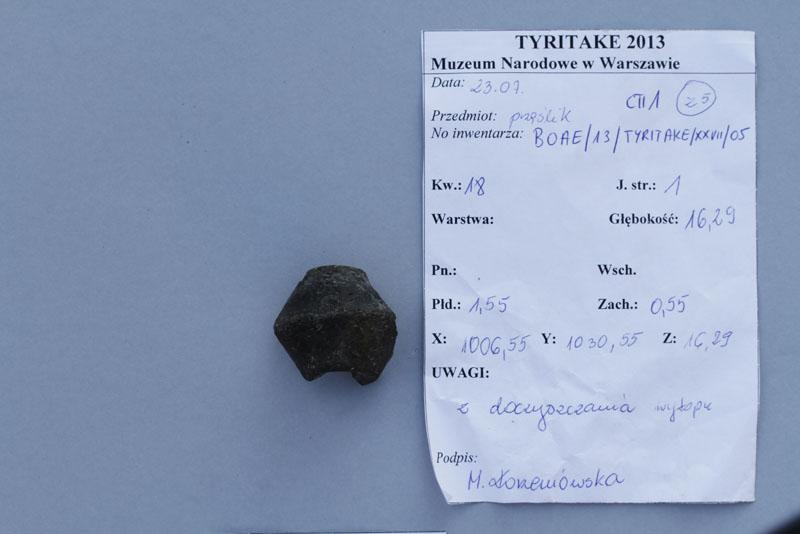 TYRITAKE 2013
Muzeum Narodowe w Warszawie
Data: 23.07.
CTI1 25
Przedmiot: przęślik
No inwentarza: BOAE/13/TYRITAKE/XXVII/05
Kw.: 18 J. str.: 1
Warstwa: Głębokość: 16,29
Pn.: Wsch.
Płd.: 1,55 Zach.: 0,55
X: 1006,55 Y: 1030,55 Z: 16,29
UWAGI:
z doczyszczania
Podpis:
M.